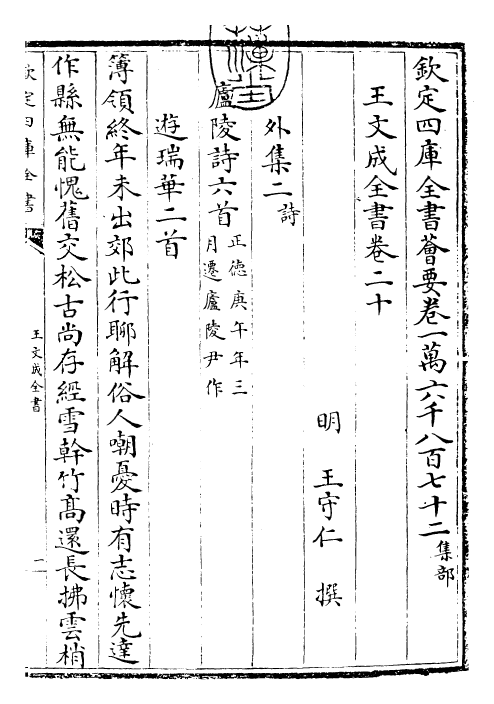 欽定四庫全書薈要卷一萬六千八百七十二集部
王文成全書卷二十
明 王守仁 撰
外集二詩
廬陵詩六首正德庚午年三
月遷廬陵尹作
遊瑞華二首
簿領終年未出郊此行聊解俗人嘲憂時有志懷先達
作縣無能愧舊交松古尚存經雪幹竹髙還長拂雲梢
欽定四庫全書
王文成全書